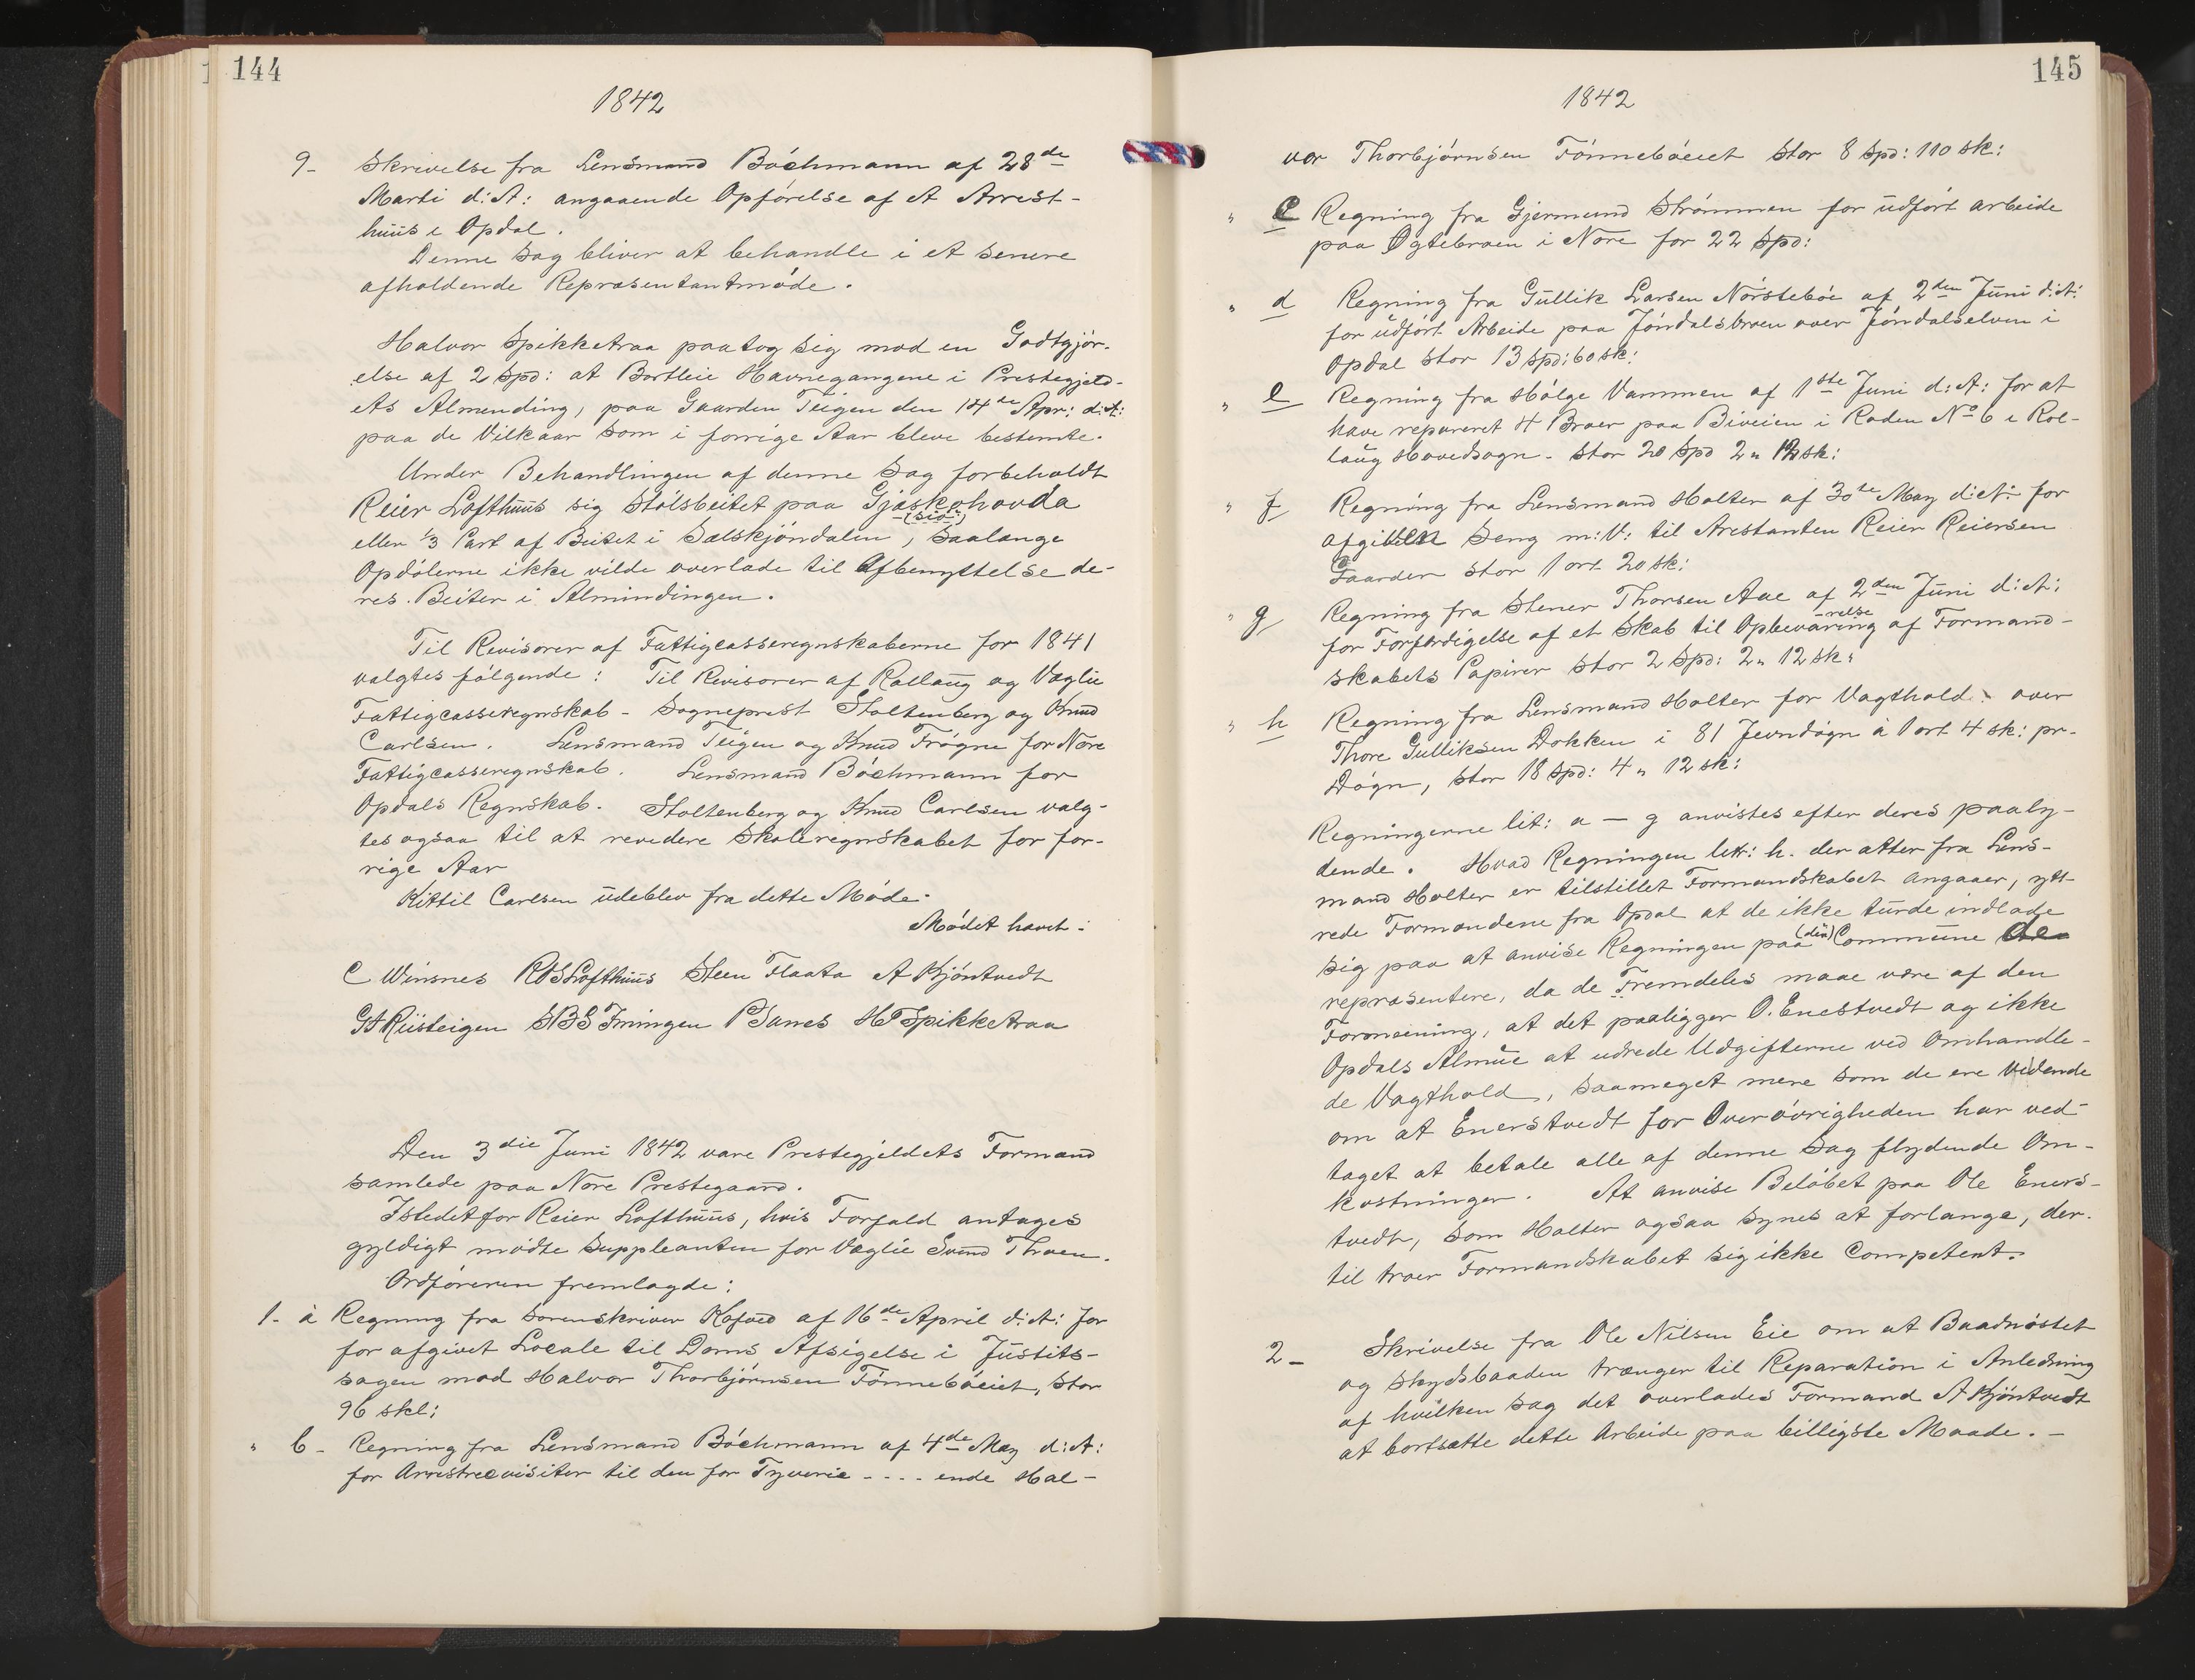 144
1842
9- Skrivelse fra Lensmand Böchmann af 28de
Marti d:A: angaaende Opförelse af et Arrest-
huus i Opdal.
Denne Sag bliver at behandle i et senere
afholdende Repræsentantmöde.
Halvor Spikketraa paatog sig mod en Godtgjör-
else af 2 Spd: at Bortleie Havnegangene i Prestegjeld-
ets Almending, paa Gaarden Teigen den 14de Apr: d:A:
paa de Vilkaar som i forrige Aar bleve bestemte.
Under Behandlingen af denne Sag forbeholdt
Reier Lofthuus sig Stölsbeitet paa Gjaskehovda
(sic:)
eller 1/3 Part af Beitet i Sælskjöndalen, saalænge
Opdölerne ikke vilde overlade til Afbenyttelse de-
res Beiter i Almindingen.
Til Revisorer af Fattigcasseregnskaberne for 1841
valgtes fölgende: Til Revisorer af Rollaug og Væglie
Fattigcasseregnskab - Sogneprest Stoltenberg og Knud
Carlsen. Lensmand Teigen og Knud Frögne for Nore
Fattigcasseregnskab. Lensmand Böchmann for
Opdals Regnskab. Stoltenberg og Knud Carlsen valg-
tes ogsaa til at revidere Skoleregnskabet for for-
rige Aar
Kittil Carlsen udeblev fra dette Möde.
Mödet hævet:
C Winsnes RBSLofthuus Steen Flaata A Kjöntvedt
GARüsteigen SBS Imingen PSanes HTSpikketraa
Den 3die Juni 1842 vare Prestegjeldets Formænd
samlede paa Nore Prestegaard.
Istedetfor Reier Lofthuus, hvis Forfald antages
gyldigt mödte Suppleanten for Væglie Svend Thoen.
Ordföreren fremlagde:
1- à Regning fra Sorenskriver Kofoed af 16de April d:A: for
for afgivet Locale til Doms Afsigelse i Justits-
sagen mod Halvor Thorbjörnsen Fönneböeiet, stor
96 skl:
" b- Regning fra Lensmand Böchmann af 4de May d:A:
for Arrestrecvisiter til den for Tyverie - - - - ende Hal-
145
1842
vor Thorbjörnsen Fönneböeiet stor 8 Spd: 110 sk:
" c Regning fra Gjermund Strömmen for udfört arbeide
paa Ogtebroen i Nore for 22 Spd:
" d Regning fra Gullik Larsen Nörsteböe af 2den Juni d:A:
for udfört Arbeide paa Jöndalsbroen over Jöndalselven i
Opdal stor 13 Spd: 60 sk:
" e Regning fra Hölge Vammen af 1ste Juni d:A: for at
have repareret 4 Broer paa Biveien i Roden No 6 i Rol-
laug Hovedsogn. stor 20 Spd 2 " 12 sk:
" f Regning fra Lensmand Holter af 30te May d:A: for
afgiven Seng m:V: til Arestanten Reier Reiersen
Gaarden stor 1 ort 20 sk:
" g Regning fra Stener Thorsen Aae af 2den Juni d:A:
-relse
for Forfærdigelse af et Skab til Opbevaring af Formand-
skabets Papirer stor 2 Spd: 2 " 12 sk:
" h Regning fra Lensmand Holter for Vagthold over
Thore Gulliksen Dokken i 81 Jevndögn à 1 ort 4 sk: pr.
Dögn, stor 18 Spd: 4 " 12 sk:
Regningerne lit: a - g anvistes efter deres paaly-
dende. Hvad Regningen littr: h. der atter fra Lens-
mand Holter er tilstillet Formandskabet angaaer, ytt-
rede Formændene fra Opdal at de ikke turde indlade
sig paa at anvise Regningen paa (din) Commune de
repræsentere, da de Fremdeles maae være af den
Formeining, at det paaligger O. Enestvedt og ikke
Opdals Almue at udrede Udgifterne ved Omhandle-
de Vagthold, saameget mere som de ere vidende
om at Enerstvedt for Overövrigheden har ved-
taget at betale alle af denne Sag flydende Om-
kostninger. At anvise Belöbet paa Ole Eners-
tvedt, som Holter ogsaa synes at forlange, der-
til troer Formandskabet sig ikke Competent.
2- Skrivelse fra Ole Nilsen Eie om at Baadnöstet
og Skydsbaaden trænger til Reparation i Anledning
af hvilken Sag det overlades Formand A Kjöntvedt
at bortsætte dette Arbeide paa billigste Maade. -